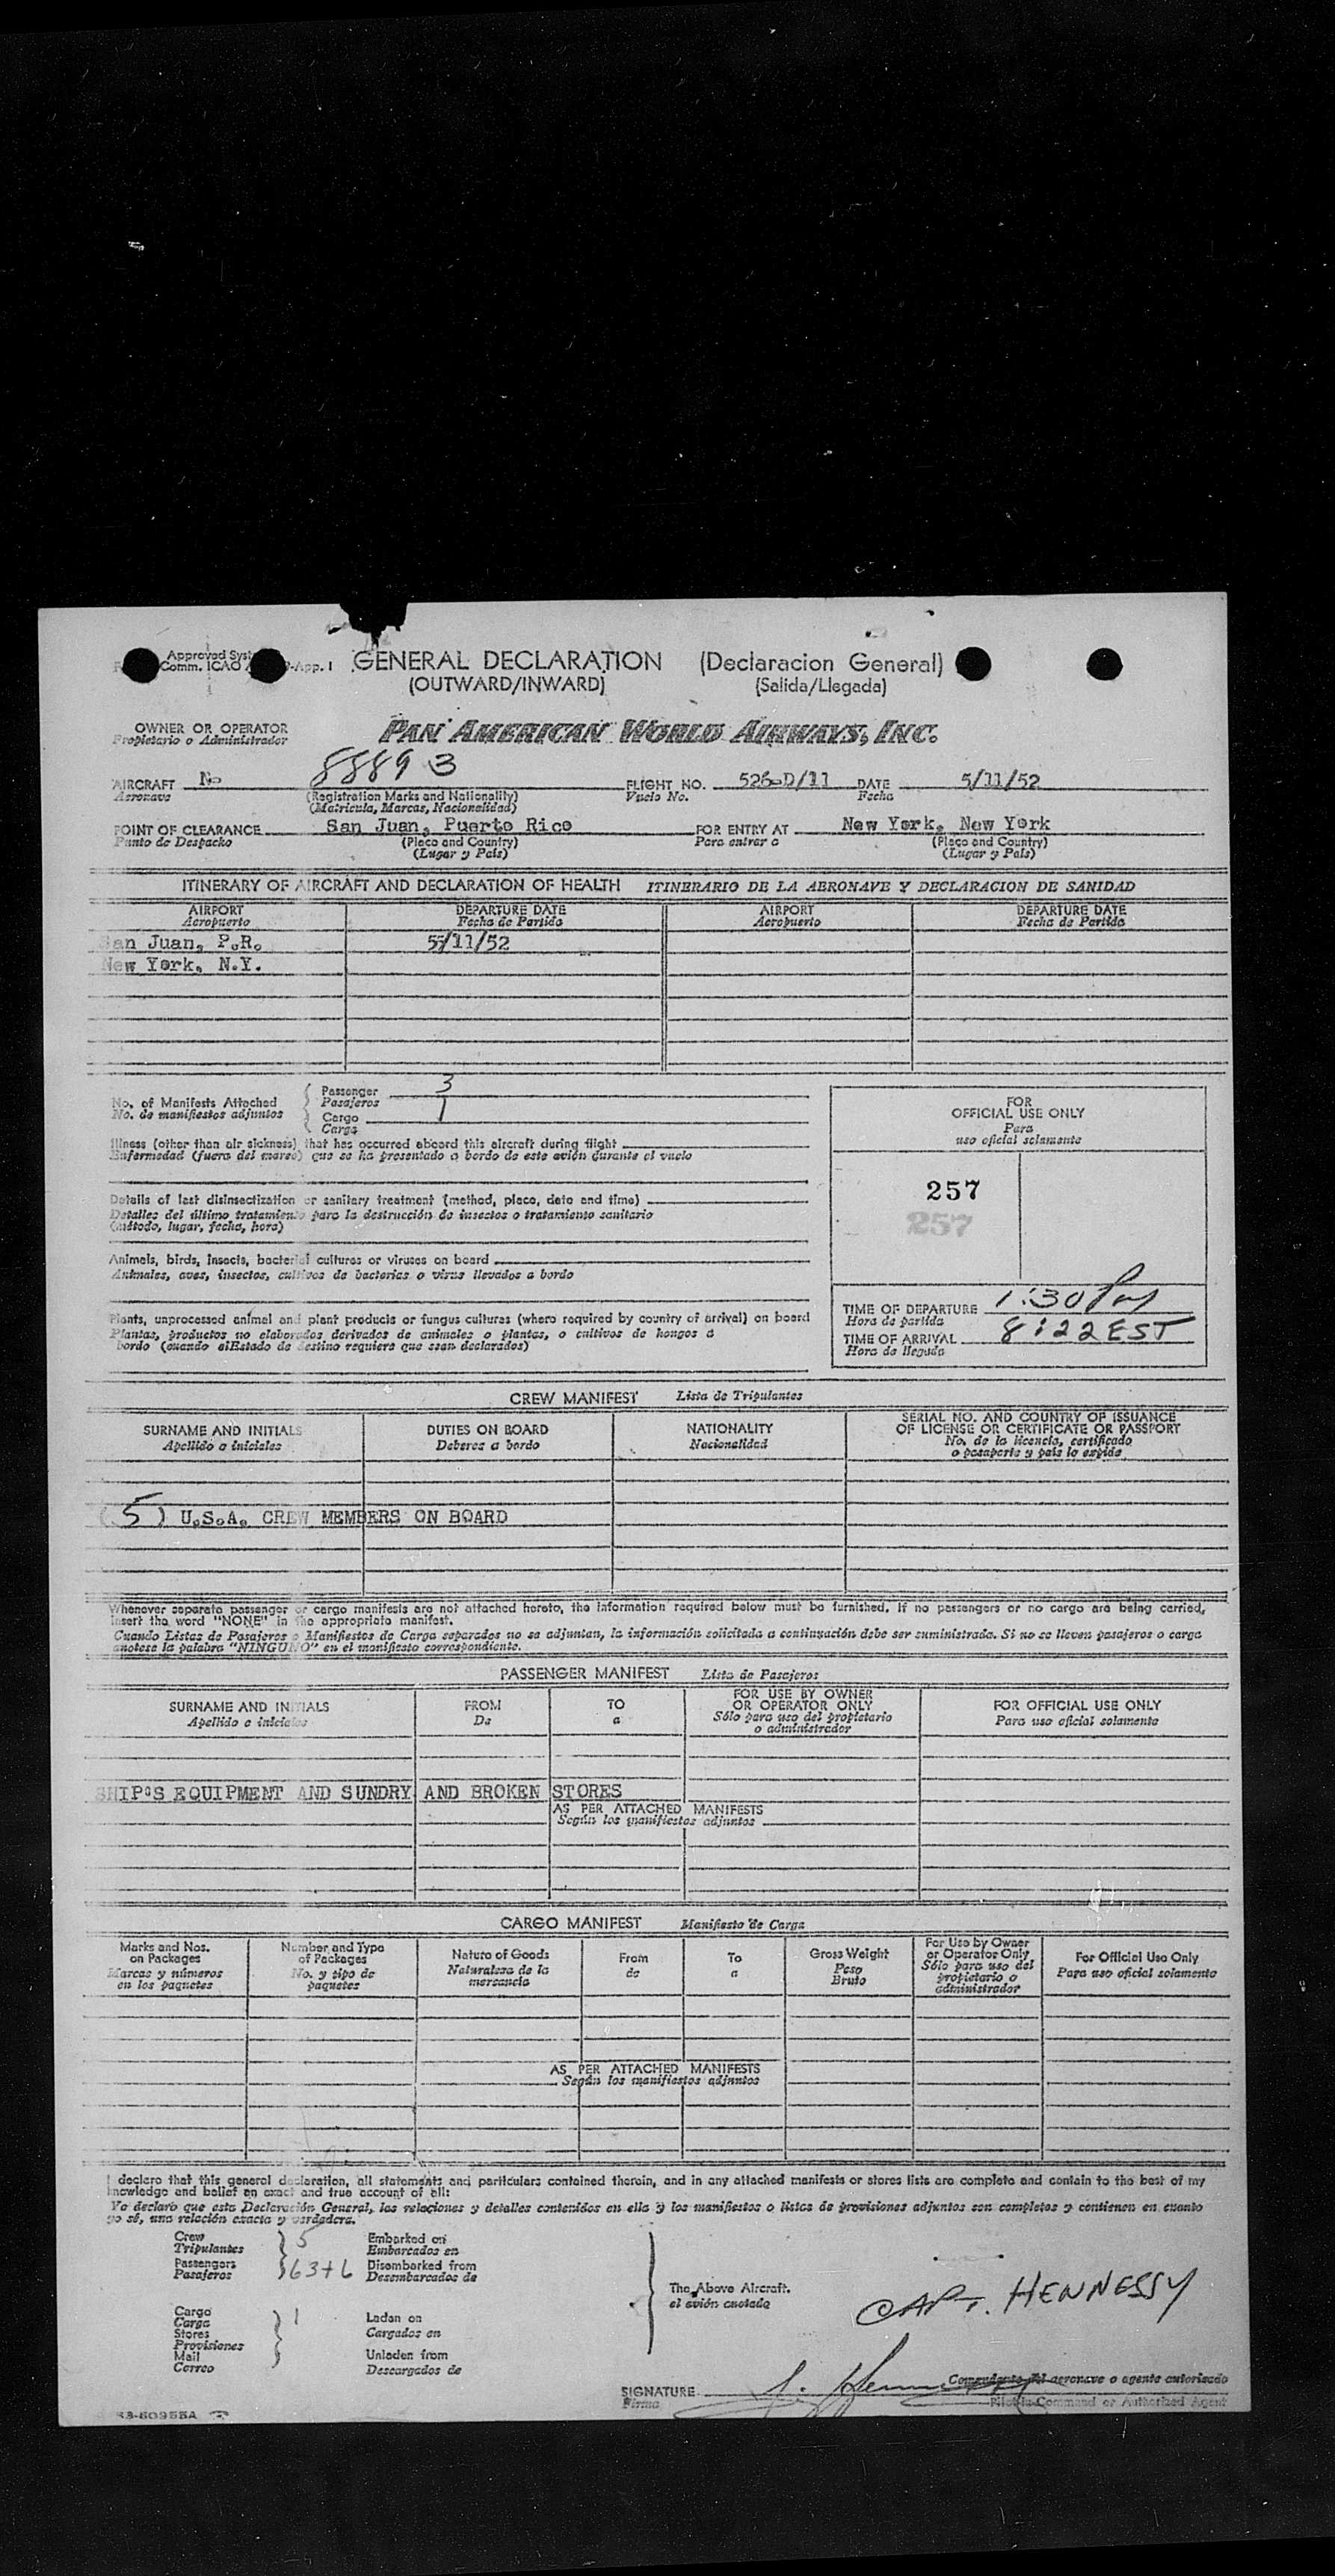 Approved Syst
Comm. ICAO -App. 1
GENERAL DECLARATION (Declaracion General)
(OUTWARD/INWARD) (Salida/Llegada)
OWNER OR OPERATOR PAN AMERICAN WORLD AIRWAYS, INC.
Propietario o Administrador
AIRCRAFT No 88893 FLIGHT NO. DATE 5/11/52
Aeronave (Registration Marks and Nationality) Vuelo No. Fecha
(Matricula, Marcas, Nacionalidad)
POINT OF CLEARANCE San Juan, Puerto Rico FOR ENTRY AT New York, New York
Punto de Despacho (Place and Country) Para entrar a (Place and Country)
(Lugar y País) (Lugar y País)
ITINERARY OF AIRCRAFT AND DECLARATION OF HEALTH ITINERARIO DE LA AERONAVE Y DECLARACION DE SANIDAD
AIRPORT DEPARTURE DATE AIRPORT DEPARTURE DATE
Aeropuerto Fecha de Partida Aeropuerto Fecha de Partida
San Juan, P.R. 5/11/52
New York, N.Y.
No. of Manifests Attached Passenger 3
No. de manifiestos adjuntos Pasajeros
Cargo 1
Carga
Illness (other than air sickness) that has occurred aboard this aircraft during flight
Enfermedad (fuera del mareo) que se ha presentado a bordo de este avión durante el vuelo
Details of last disinsectization or sanitary treatment (method, place, date and time)
Detalles del último tratamiento para la destrucción de insectos o tratamiento sanitario
(método, lugar, fecha, hora)
Animals, birds, insects, bacterial cultures or viruses on board
Animales, aves, insectos, cultivos de bacterias o virus llevados a bordo
Plants, unprocessed animal and plant products or fungus cultures (where required by country of arrival) on board
Plantas, productos no elaborados derivados de animales o plantas, o cultivos de hongos a
bordo (cuando elEstado de destino requiera que sean declarados)
FOR
OFFICIAL USE ONLY
Para
uso oficial solamente
257
257
TIME OF DEPARTURE 1:30 PM
Hora de partida
TIME OF ARRIVAL 8:22 EST
Hora de llegada
CREW MANIFEST Lista de Tripulantes
SURNAME AND INITIALS DUTIES ON BOARD NATIONALITY SERIAL NO. AND COUNTRY OF ISSUANCE
OF LICENSE OR CERTIFICATE OR PASSPORT
Apellido o iniciales Deberes a bordo Nacionalidad No. de la licencia, certificado
o pasaporte y país lo expide
(5) U.S.A. CREW MEMBERS ON BOARD
Whenever separate passenger or cargo manifests are not attached hereto, the information required below must be furnished. If no passengers or no cargo are being carried,
insert the word "NONE" in the appropriate manifest.
Cuando Listas de Pasajeros o Manifiestos de Carga separados no se adjuntan, la información solicitada a continuación debe ser suministrada. Si no se lleven pasajeros o carga
anotese la palabra "NINGUNO" en el manifiesto correspondiente.
PASSENGER MANIFEST Lista de Pasajeros
SURNAME AND INITIALS FROM TO FOR USE BY OWNER
OR OPERATOR ONLY FOR OFFICIAL USE ONLY
Apellido e iniciales De a Sólo para uso del propietario
o administrador Para uso oficial solamente
SHIP'S EQUIPMENT AND SUNDRY AND BROKEN STORES
AS PER ATTACHED MANIFESTS
Según los manifiestos adjuntos
CARGO MANIFEST Manifiesto de Carga
Marks and Nos.
on Packages
Marcas y números
en los paquetes
Number and Type
of Packages
No. y tipo de
paquetes
Nature of Goods
Naturaleza de la
mercancia
From
de
To
a
Gross Weight
Peso
Bruto
For Use by Owner
or Operator Only
Sólo para uso del
propietario o
administrador
For Official Use Only
Para uso oficial solamente
AS PER ATTACHED MANIFESTS
Según los manifiestos adjuntos
I declare that this general declaration, all statements and particulars contained therein, and in any attached manifests or stores lists are complete and contain to the best of my
knowledge and belief an exact and true account of all:
Yo declaro que esta Declaración General, las relaciones y detalles contenidos en ella y los manifiestos o listas de provisiones adjuntos son completos y contienen en cuanto
yo sé, una relación exacta y verdadera.
Crew 5 Embarked on
Tripulantes Embarcados en
Passengers 63+6 Disembarked from
Pasajeros Desembarcados de
Cargo 1 Laden on
Carga Cargados en
Stores
Provisiones
Mail Unladen from
Correo Descargados de
The Above Aircraft.
el avión anotado
CAPT. HENNESSY
SIGNATURE
Firma
Comandante del aeronave o agente autorizado
Pilot-in-Command or Authorized Agent